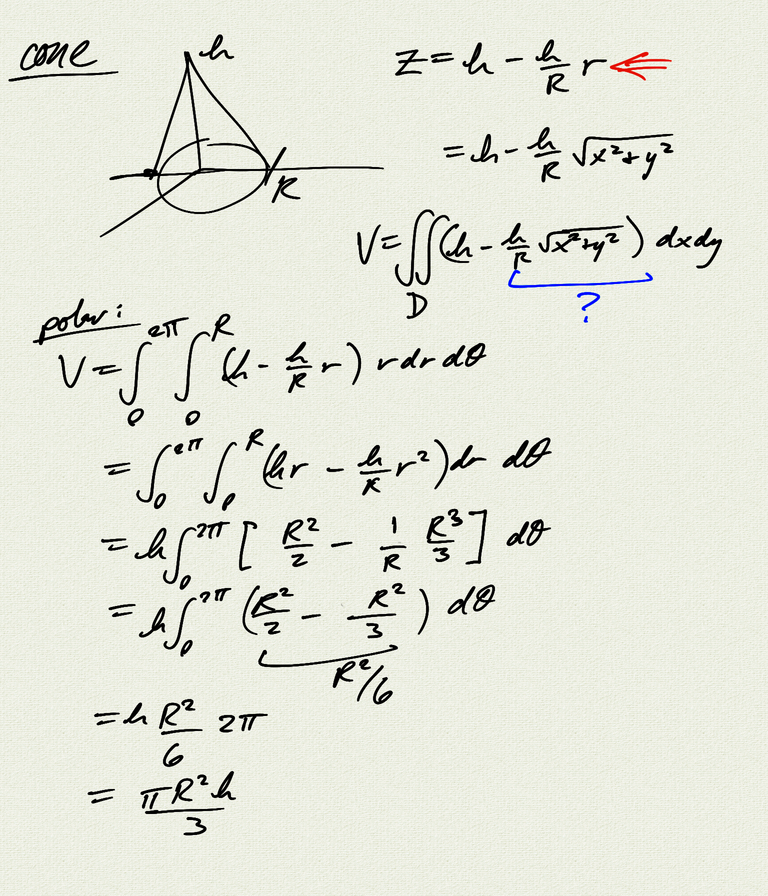 cone
h
R
z = h - h/R r
= h - h/R √(x²+y²)
V = ∬_D (h - h/R √(x²+y²)) dx dy
?
polar:
V = ∫₀^{2π} ∫₀^R (h - h/R r) r dr dθ
= ∫₀^{2π} ∫₀^R (hr - h/R r²) dr dθ
= h ∫₀^{2π} [R²/2 - 1/R R³/3] dθ
= h ∫₀^{2π} (R²/2 - R²/3) dθ
R²/6
= h R²/6 2π
= πR²h/3